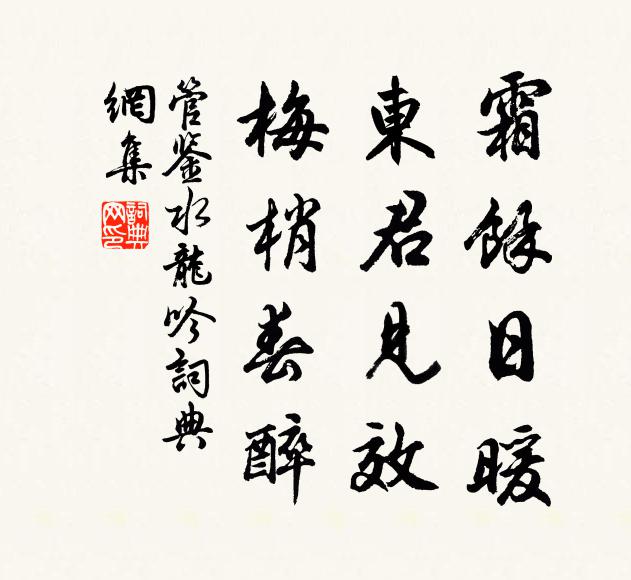 霜餘日暖
東君見效
梅梢春醉
管鉴水龍吟詞典
網集
詞典
网印